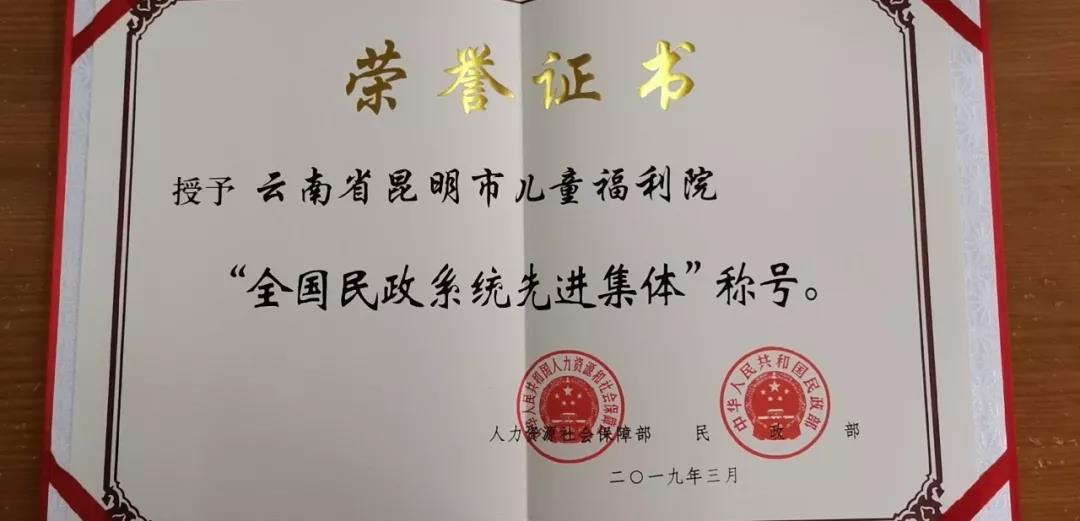 荣誉证书
授予 云南省昆明市儿童福利院
“全国民政系统先进集体”称号。
中华人民共和国人力资源和社会保障部
中华人民共和国民政部
人力资源社会保障部 民政部
二〇一九年三月